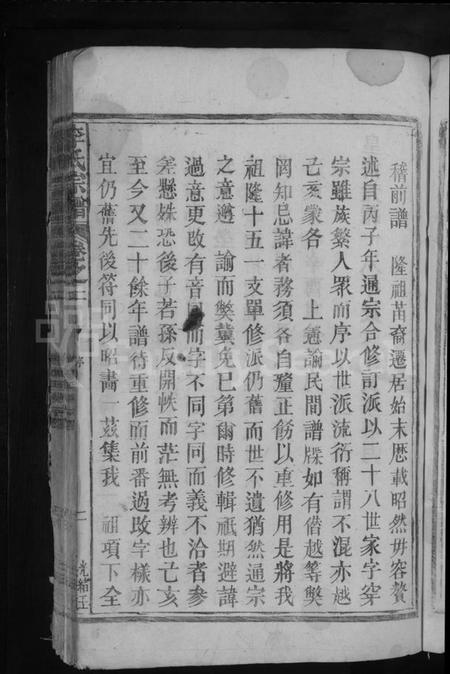 稽前譜　隆祖苗裔遷居始末歷載昭然毋容贅
述自丙子年通宗合修訂派以二十八世家字穿
宗雖族繁人眾而序以世派流衍稱謂不混亦越
己亥蒙各　上憲諭民間譜牒如有僭越等獘
罔知忌諱者務須各自釐正飭以重修用是將我
祖隆十五一支單修派仍舊而世不遺猶然通宗
之意遵　諭而獘冀免已第爾時修輯祇期避諱
過意更改有音同而字不同字同而義不洽者參
差懸殊恐後子若孫反開帙而茫無考辨也己亥
至今又二十餘年譜待重修而前番過改字樣亦
宜仍舊先後符同以昭畫一茲集我　祖項下全
李氏宗譜 卷之一
序
二
光裕庄